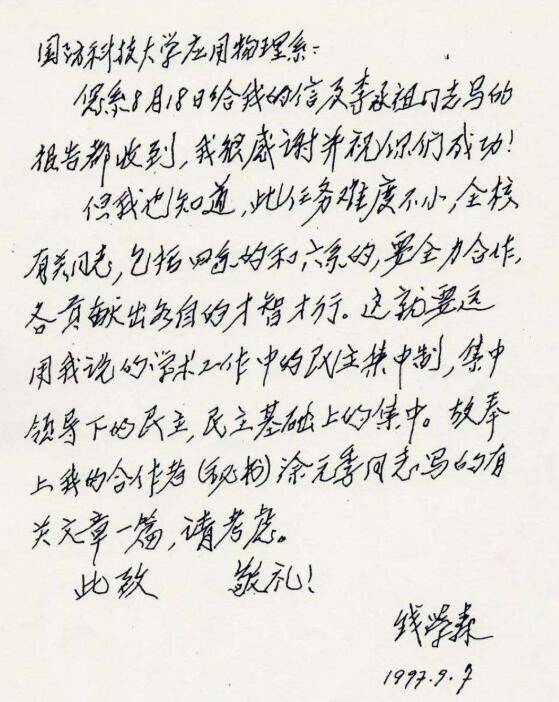 国防科技大学应用物理系:
您系8月18日给我的信及李承祖同志写的
报告都收到,我很感谢并祝你们成功!
但我也知道,此任务难度不小,全校
有关同志,包括四系的和六系的,要全力合作,
各贡献出各自的才智才行。这就要运
用我说的学术工作中的民主集中制,集中
领导下的民主,民主基础上的集中。故奉
上我的合作者(秘书)涂元季同志写的有
关文章一篇,请考虑。
此致 敬礼!
钱学森
1997.9.7